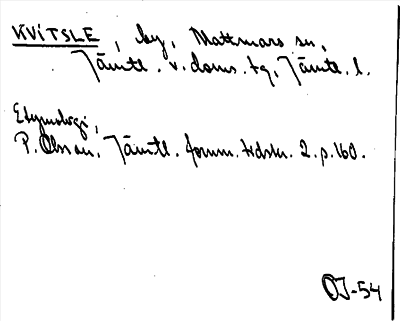 KVITSLE, by, Mattmars sn,
Jämtl. v. doms. tg, Jämtl. l.
Etymologi,
P. Olsson, Jämtl. fornm. tidskr. 2. p. 160.
OJ-54